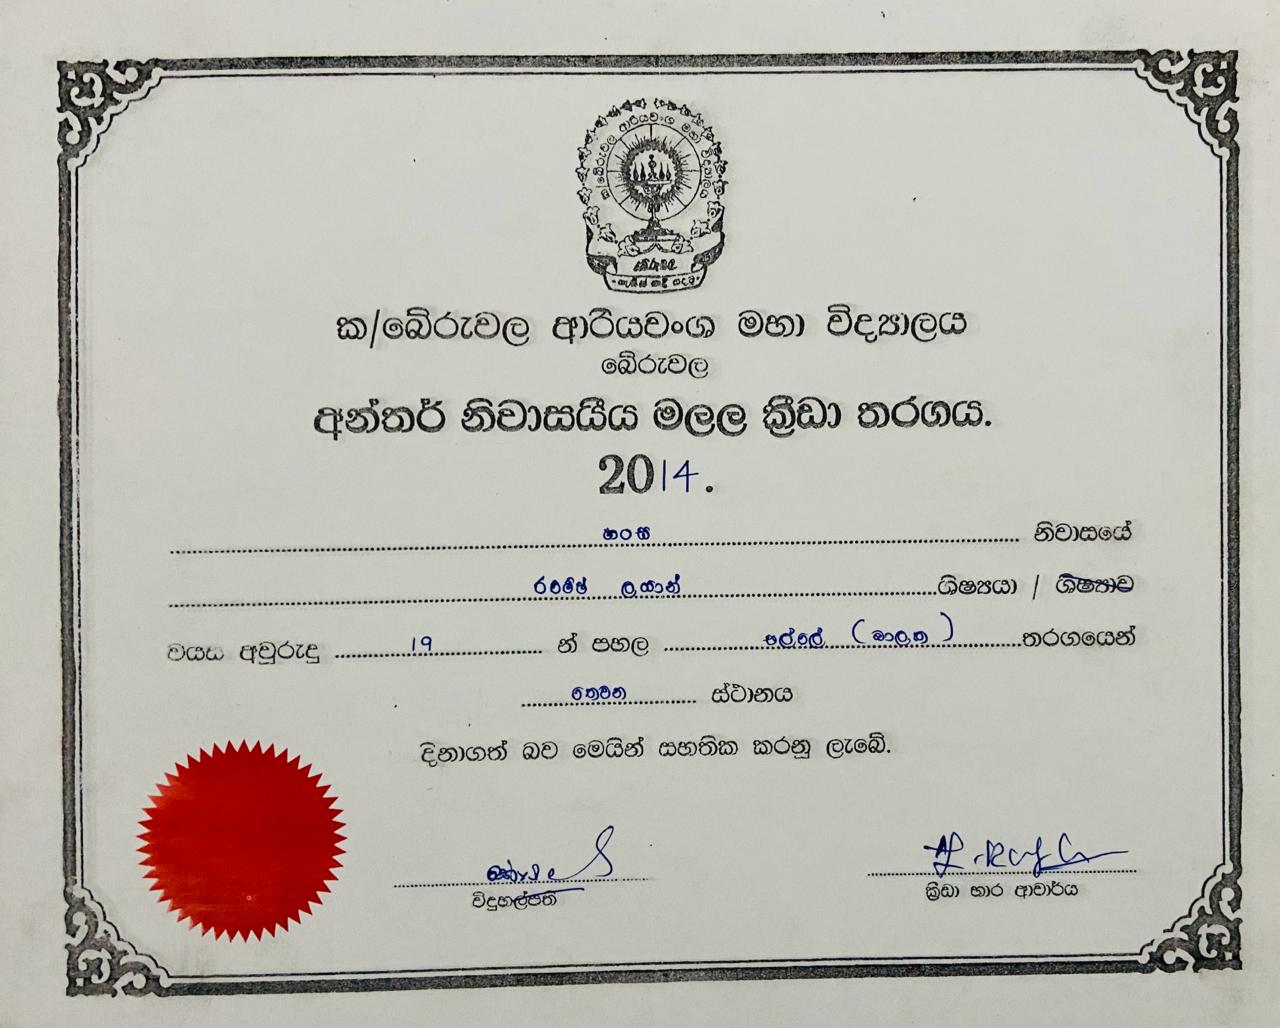 ක/බේරුවල ආරියවංශ මහා විද්‍යාලය
බේරුවල
ක/බේරුවල ආරියවංශ මහා විද්‍යාලය
බේරුවල
අන්තර් නිවාසයීය මලල ක්‍රීඩා තරගය.
2014.
හංස නිවාසයේ
රමේෂ් ලසාන් ශිෂ්‍යයා / ශිෂ්‍යාව
වයස අවුරුදු 19 න් පහල පැල්ලේ (බාලක) තරගයෙන්
තෙවන ස්ථානය
දිනාගත් බව මෙයින් සහතික කරනු ලැබේ.
විදුහල්පති
ක්‍රීඩා භාර ආචාර්ය